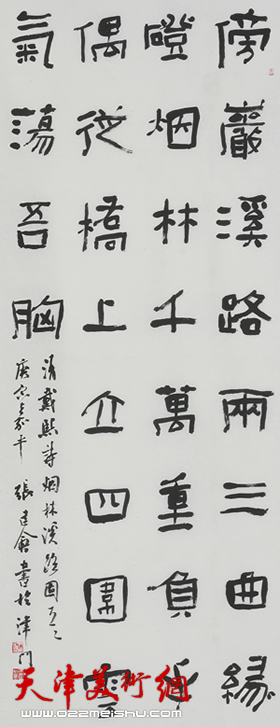 傍巖溪路兩三曲緣
磴烟林千萬重負手
偶從橋上立四圍雲
氣蕩吾胸
清戴熙烟林溪路圖
庚寅 張建會書於津門
天津美術網
www.022meishu.com